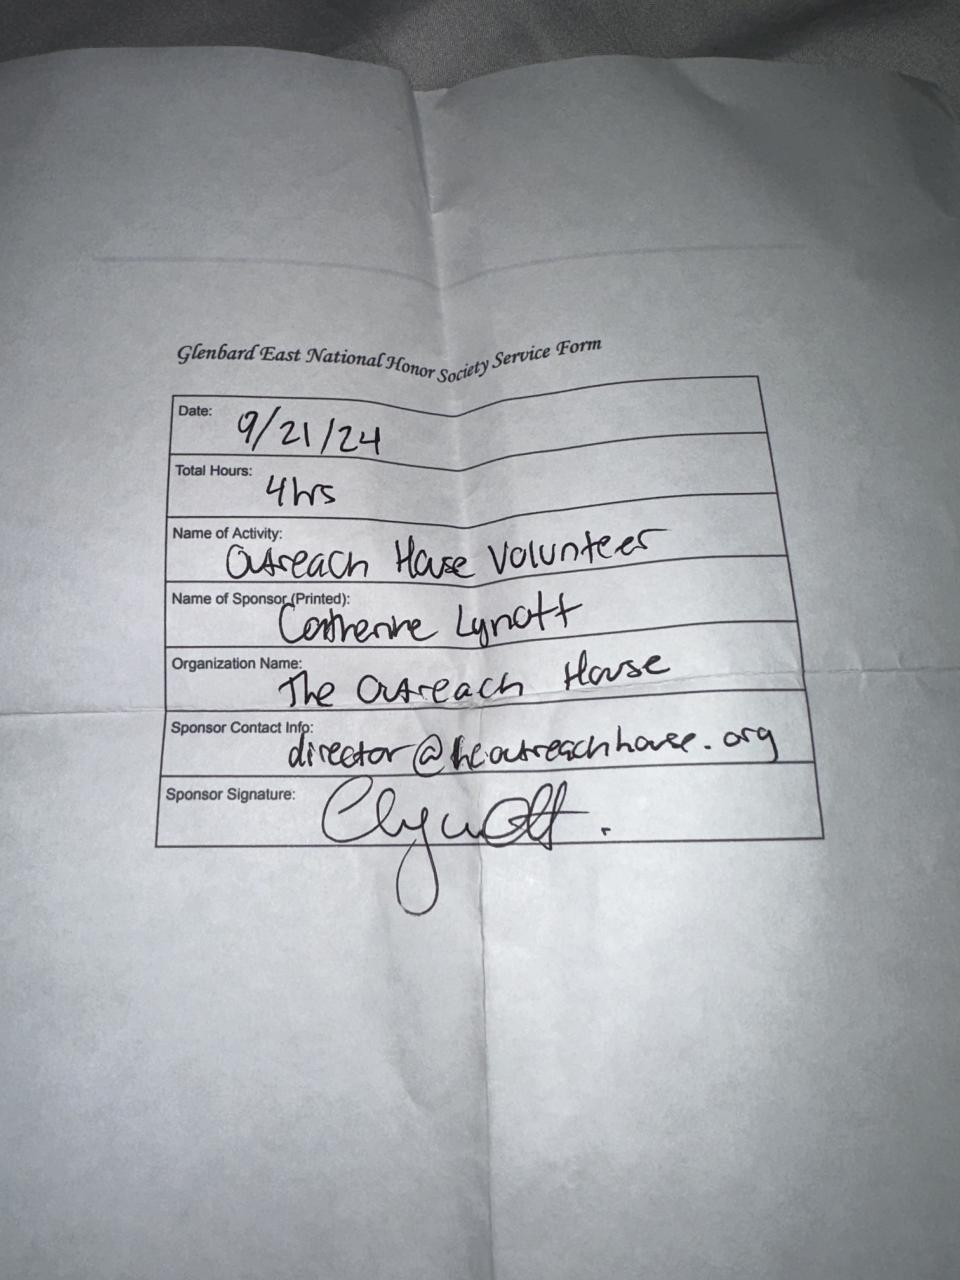 Glenbard East National Honor Society Service Form
Date: 9/21/24
Total Hours: 4hrs
Name of Activity: Outreach House Volunteer
Name of Sponsor (Printed): Catherine Lynott
Organization Name: The Outreach House
Sponsor Contact Info: director@theoutreachhouse.org
Sponsor Signature: Clynott.